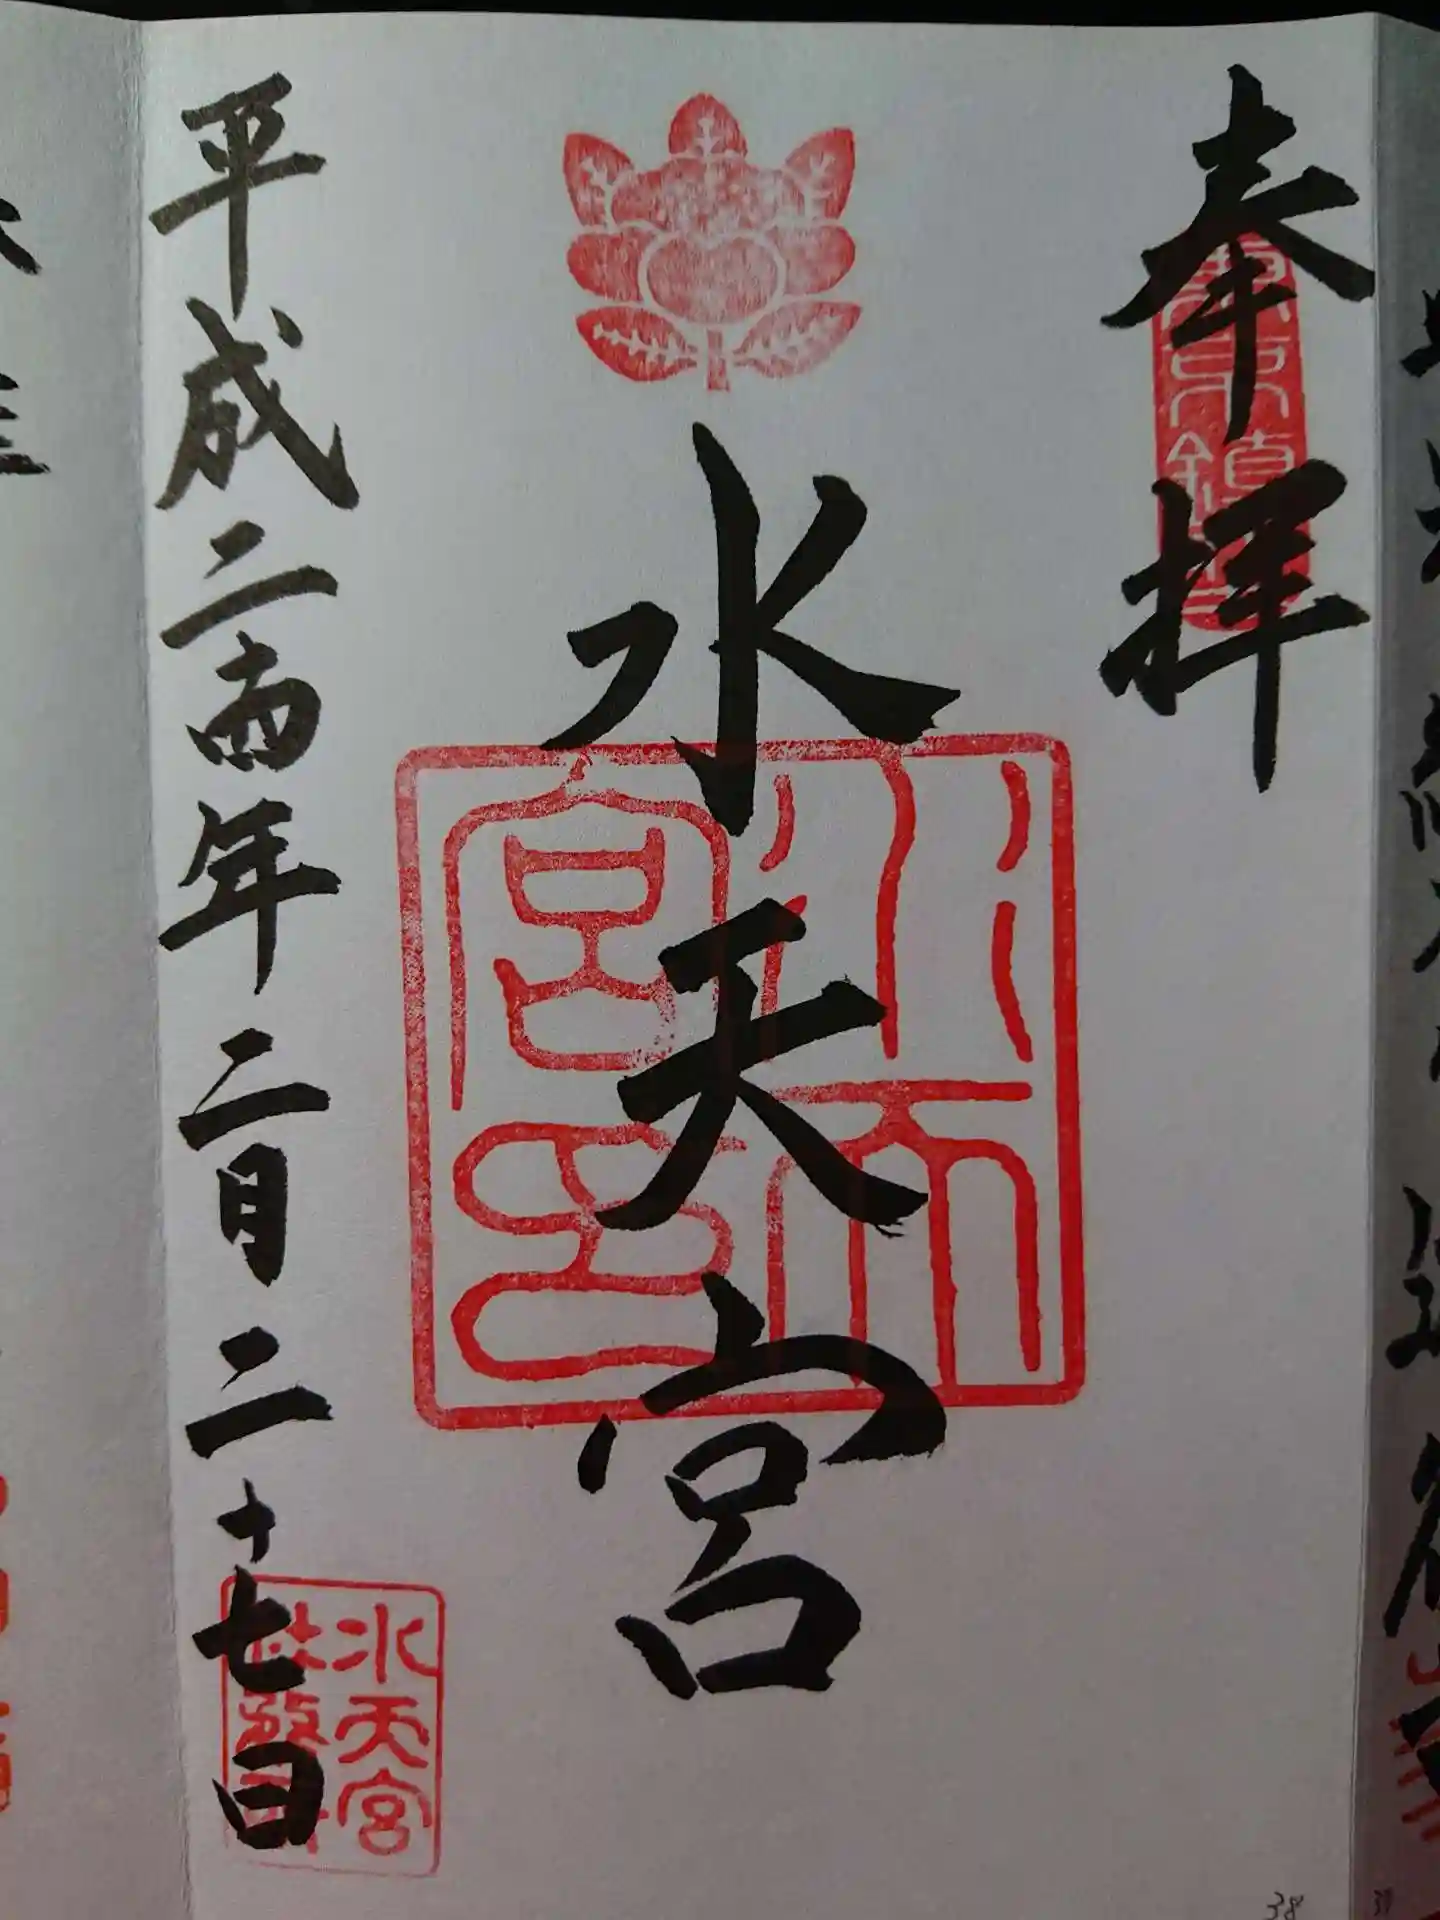 奉拝
水天宮
水天宮印
平成二十四年二月二十七日
水天宮
社務所
38
37